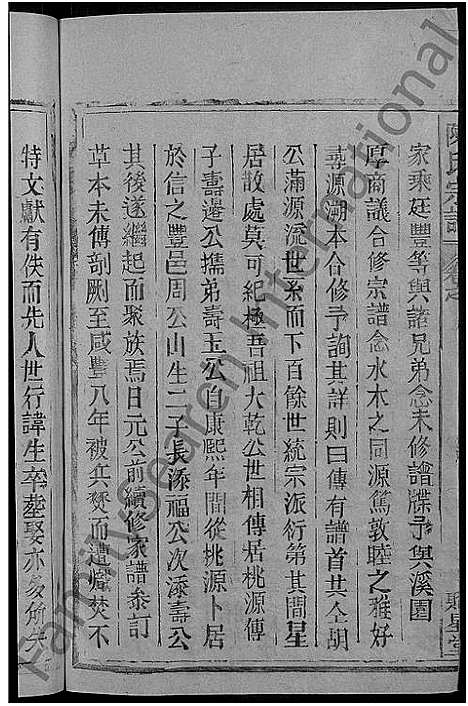 陳氏宗譜
聚星堂
家乘廷豐等與諸兄弟念未修譜牒予與溪園
厚商議合修宗譜念水木之同源篤敦睦之雅好
尋源溯本合修予詢其詳則曰傳有譜首其仝胡
公滿源流世系而下百餘世統宗派衍第其間星
居散處莫可紀極吾祖大乾公世相傳居桃源傳
子壽遷公㩦弟壽玉公自康熙年間從桃源卜居
於信之豐邑周公山生二子長添福公次添壽公
其後遂繼起而聚族焉日元公前續修家譜忝訂
草本未傳剖劂至咸豐八年被兵燹而遺燼焚不
特文獻有佚而先人世行諱生卒塟娶亦多所失
FamilySearch International